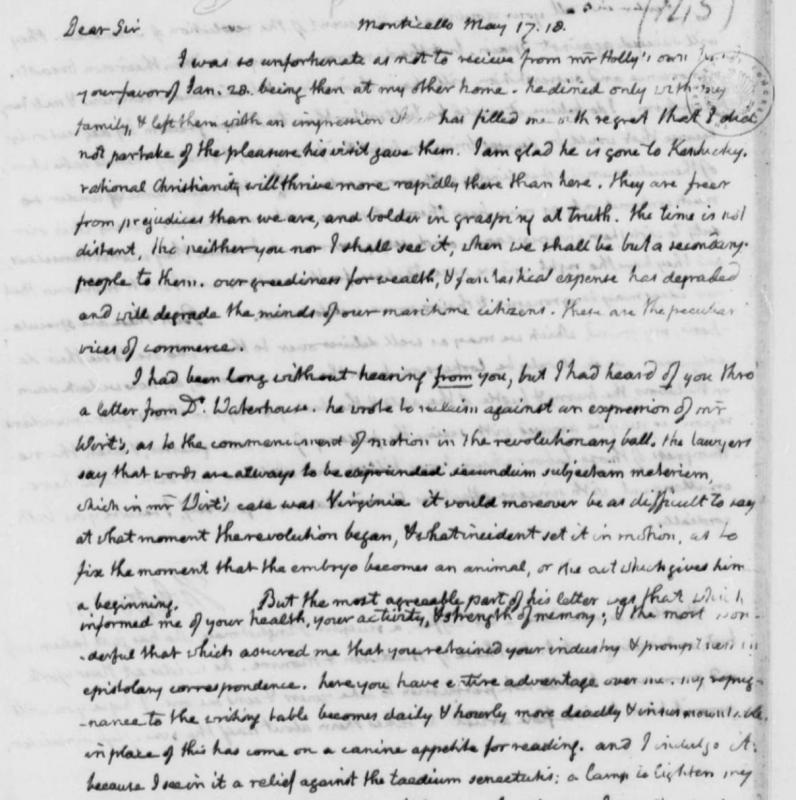 Dear Sir Monticello May 17. 18.
I was so unfortunate as not to recieve from mr Holly's own hand
your favor of Jan. 28. being then at my other home. he dined only with my
family, & left them with an impression which has filled me with regret that I did
not partake of the pleasure his visit gave them. I am glad he is gone to Kentucky.
rational Christianity will thrive more rapidly there than here. they are freer
from prejudices than we are, and bolder in grasping at truth. the time is not
distant, tho' neither you nor I shall see it, when we shall be but a secondary
people to them. our greediness for wealth, & fantastical expense has degraded
and will degrade the minds of our maritime citizens. these are the peculiar
vices of commerce.
I had been long without hearing from you, but I had heard of you thro'
a letter from Dr. Waterhouse. he wrote to reclaim against an expression of mr
Wirt's, as to the commencement of motion in the revolutionary ball. the lawyers
say that words are always to be expounded secundum subjectam materiem,
which in mr Wirt's case was Virginia it would moreover be as difficult to say
at what moment the revolution began, & what incident set it in motion, as to
fix the moment that the embryo becomes an animal, or the act which gives him
a beginning. But the most agreeable part of his letter was that which
informed me of your health, your activity, & strength of memory; & the most won-
-derful that which assured me that you retained your industry & promptness in
epistolary correspondence. here you have entire advantage over me. my repug-
-nance to the writing table becomes daily & hourly more deadly & insurmountable.
in place of this has come on a canine appetite for reading. and I indulge it:
because I see in it a relief against the taedium senectutis; a lamp to lighten my